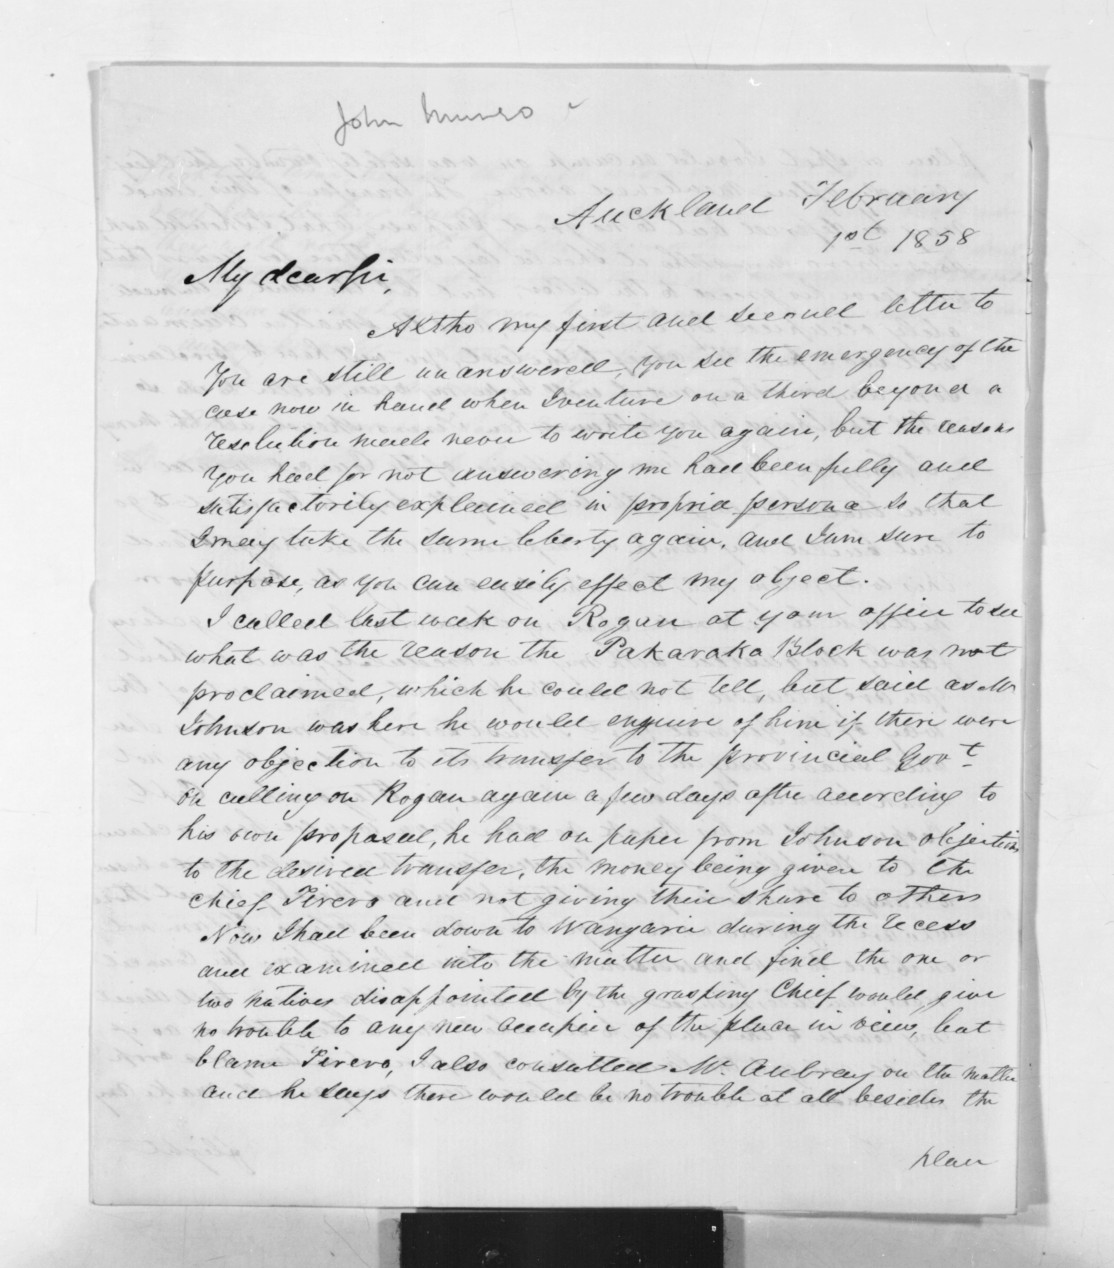 John Munro
Auckland February
1st 1858
My dear Sir,
Altho my first and second letter to
You are still unanswered, You see the emergency of the
case now in hand when I venture on a third beyond a
resolution made never to write you again, but the reasons
You had for not answering me had been fully and
satisfactorily explained in propria persona so that
I may take the same liberty again, and I am sure to
purpose, as you can easily effect my object.
I called last week on Rogan at your office to see
what was the reason the Pakaraka Block was not
proclaimed, which he could not tell, but said as Mr
Johnson was here he would enquire of him if there were
any objection to its transfer to the provincial Govt.
On calling on Rogan again a few days after according to
his own proposal, he had on paper from Johnson objections
to the desired transfer, the money being given to the
chief Tirero and not giving their share to others
Now I had been down to Wangarei during the recess
and examined into the matter and find the one or
two natives disappointed by the grasping Chief would give
no trouble to any new occupier of the place in view, but
blame Tirero, I also consulted Mr. Aubrey on the matter
and he says there would be no trouble at all besides the
plan